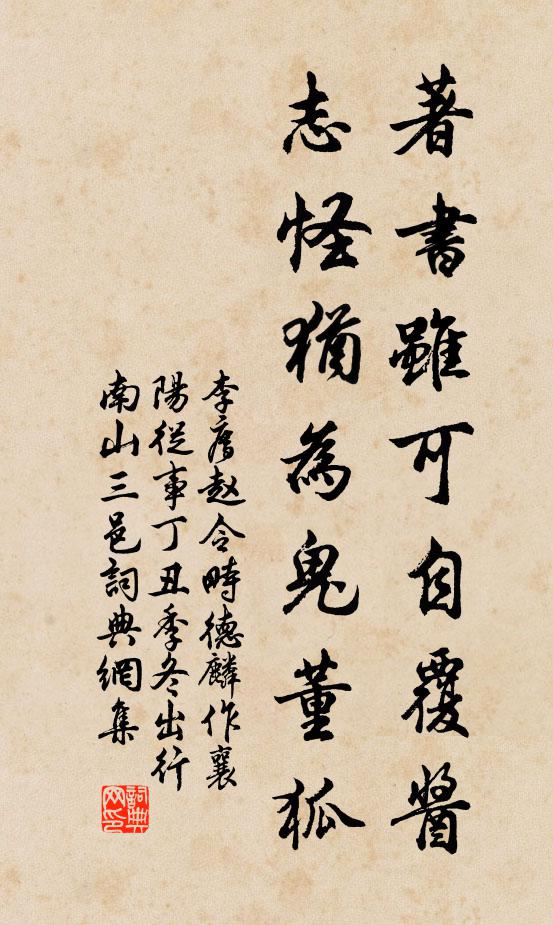 著書雖可自覆醬
志怪猶為鬼董狐
李廌趙令畤德麟作襄
陽從事丁丑季冬出行
南山三邑詞典網集
詞典网印